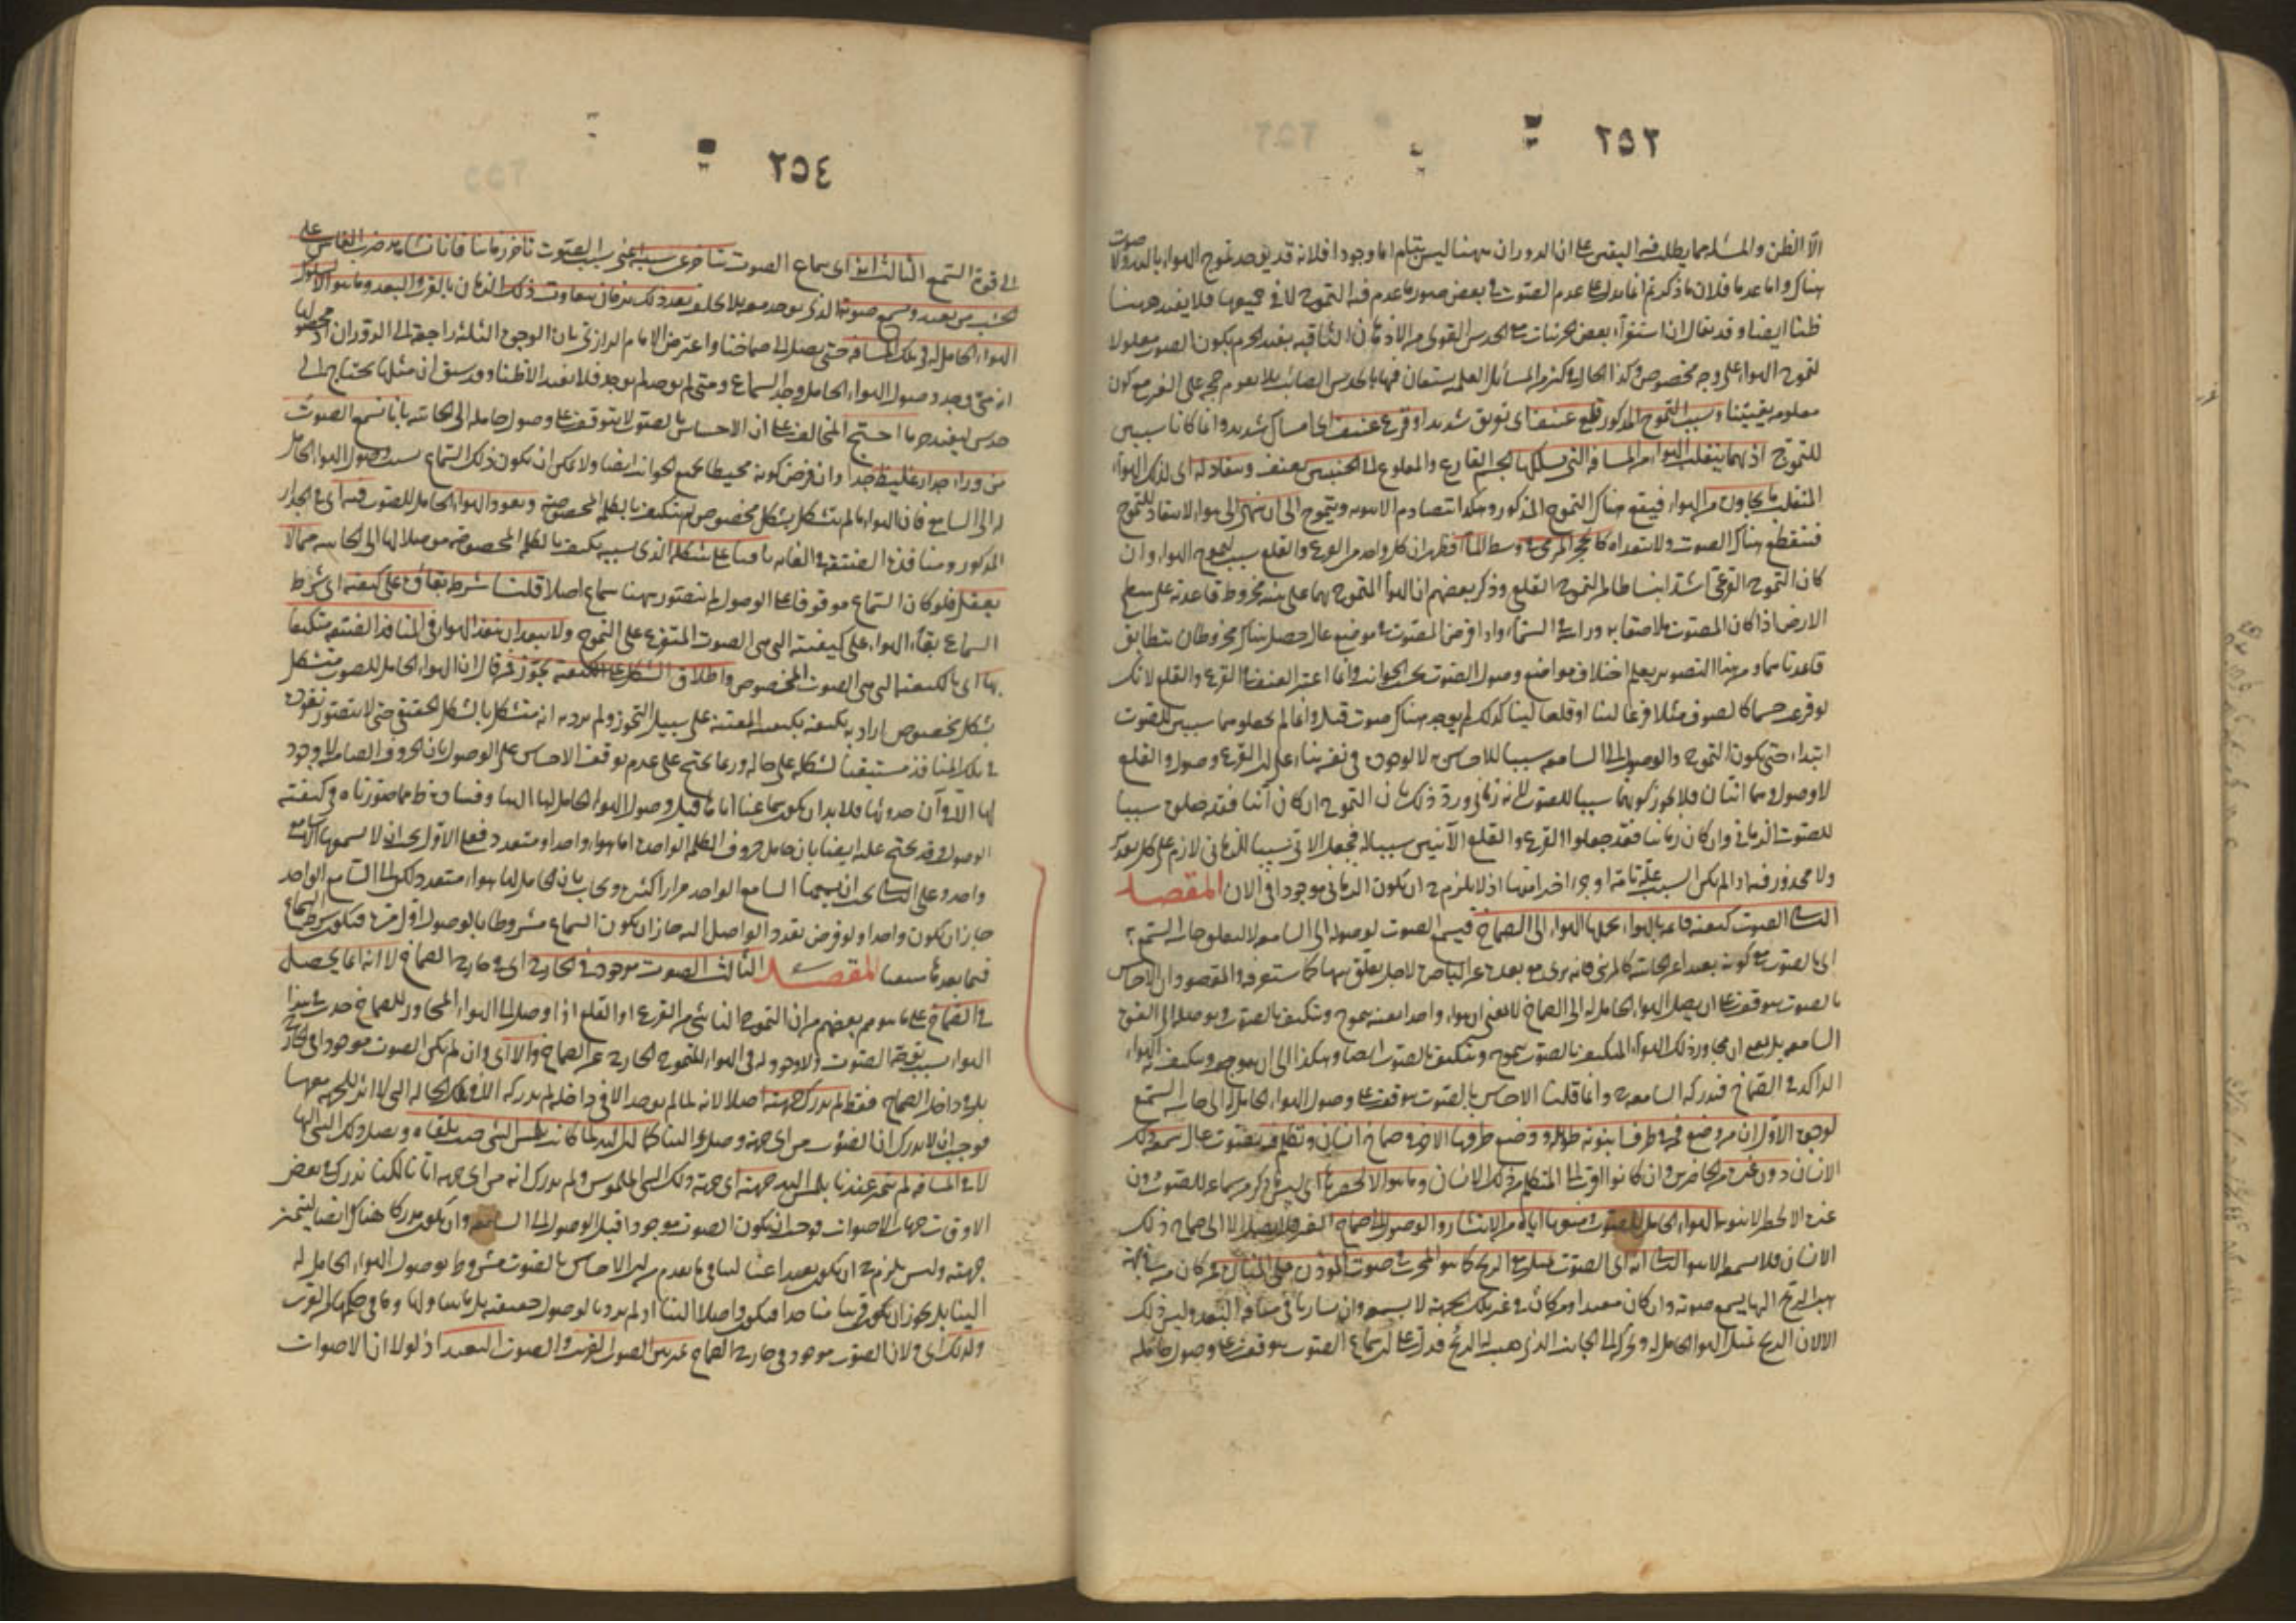 ٢٥٣
الا الظن والمسئلة مما يطلب فيه اليقين على ان الدوران ههنا ليس بتام اما وجودا فلانه قد يوجد تموج الهواء باليد ولا صوت
هناك واما عدما فلان ما ذكرتم انما يدل على عدم الصوت في بعض صور ما عدم فيه التموج لا في جميعها فلا يفيد ههنا
ظنا ايضا وقد يقال ان استقراء بعض الجزئيات مع الحدس القوي من الاذهان الثاقبة يفيد الجزم بكون الصوت معلولا
لتموج الهواء على وجه مخصوص وكذا الحال في كثير من المسائل العلمية يستعان فيها بالحدس الصائب فلا يقوم حجة على الغير مع كون
معلومه يقينيا وسبب التموج المذكور قلع عنيف اى تفريق شديد او قرع عنيف اى امساس شديد وانما كانا سببين
للتموج اذ بهما ينقلب الهواء من المسافة التي يسلكها الجسم القارع والمقلوع الى الجنبتين بعنف وينقاد له اى لذلك الهواء
المنقلب ما يجاوره من الهواء فيقع هناك التموج المذكور وهكذا تتصادم الاهوية وتتموج الى ان تنتهي الى هواء لا ينقاد للتموج
فينقطع هناك الصوت ولا يتعداه كالحجر المرمي في وسط الماء فظهر ان كل واحد من القرع والقلع سبب لتموج الهواء وان
كان التموج القرعي اشد انبساطا من التموج القلعي وذكر بعضهم ان الهواء المتموج بهما على هيئة مخروط قاعدته على سطح
الارض اذا كان المصوت ملاصقا به ورأسه في السماء واذا فرض المصوت في موضع عال حصل هناك مخروطان تتطابق
قاعدتاهما ومن هذا التصوير يعلم اختلاف مواضع وصول الصوت بحسب الجوانب وانما اعتبر العنف في القرع والقلع لانك
لو قرعت جسما كالصوف مثلا قرعا لينا او قلعته لينا كذلك لم يوجد هناك صوت قيل وانما لم يجعلوهما سببين للصوت
ابتداء حتى يكون التموج والوصول الى السامعة سببا للاحساس به لا لوجوده في نفسه بناء على ان القرع وصول والقلع
لا وصول وهما آنيان فلا يجوز كونهما سببا للصوت لانه زماني ورد ذلك بان التموج ان كان آنيا فقد جعلوه سببا
للصوت الزماني وان كان زمانيا فقد جعلوا القرع والقلع الآنيين سببا له فجعل الآني سببا للزماني لازم على كل تقدير
ولا محذور فيه اذا لم يكن السبب علة تامة او جزءا اخيرا منها اذ لا يلزم ح ان يكون الزماني موجودا في الآن المقصد
الثاني الصوت كيفية قائمة بالهواء يحملها الهواء الى الصماخ فيسمع الصوت لوصوله الى السامعة لا لتعلق حاسة السمع به
اى بالصوت مع كونه بعيدا عن الحاسة كالمرئي فانه يرى مع بعده عن الباصرة لاجل تعلق بينهما كما ستعرفه والمقصود ان الاحساس
بالصوت يتوقف على ان يصل الهواء الحامل له الى الصماخ لا بمعنى ان هواء واحدا بعينه يتموج ويتكيف بالصوت ويوصله الى القوة
السامعة بل بمعنى ان ما يجاور ذلك الهواء المتكيف بالصوت يتموج ويتكيف بالصوت ايضا وهكذا الى ان يتموج ويتكيف به الهواء
الراكد في الصماخ فتدركه السامعة ح وانما قلنا الاحساس بالصوت يتوقف على وصول الهواء الحامل له الى حاسة السمع
لوجوه الاول ان من وضع فمه في طرف انبوبة طويلة ووضع طرفها الآخر في صماخ انسان وتكلم فيه بصوت عال سمعه ذلك
الانسان دون غيره من الحاضرين وان كانوا اقرب الى المتكلم من ذلك الانسان وما هو الا لحصرها اى ليس ما ذكر من سماعه للصوت دون
غيره الا لحصر الانبوبة الهواء الحامل للصوت ومنعها اياه من الانتشار والوصول الى صماخ الغير فلا يصل الا الى صماخ ذلك
الانسان فلا يسمعه الا هو الثاني انه اى الصوت يميل مع الريح كما هو المجرب في صوت المؤذن على المنارة فمن كان منه في جهة
تهب الريح اليها يسمع صوته وان كان بعيدا ومن كان في غير تلك الجهة لا يسمعه وان ساوياه في مسافة البعد وليس ذلك
الا لان الريح تميل الهواء الحامل له وتحركه الى الجانب الذي تهب اليه الريح فدل على ان سماع الصوت يتوقف على وصول حامله
٢٥٤
الى قوة السمع الثالث انه اى سماع الصوت يتأخر عن سببه اعني سبب الصوت تأخرا زمانيا فانا نشاهد ضرب الفأس على
الخشب من بعيد ونسمع صوته الذي يوجد معه بلا تخلف بعد ذلك بزمان يتفاوت ذلك الزمان بالقرب والبعد وما هو الا لسلوك
الهواء الحامل له في تلك المسافة حتى يصل الى صماخنا واعترض الامام الرازي بان الوجوه الثلثة راجعة الى الدوران اذ محصولها
انه متى وجد وصول الهواء الحامل وجد السماع ومتى لم يوجد لم يوجد فلا يفيد الا ظنا وقد سبق ان مثلها يحتاج الى
حدس ليفيد جزما احتج المخالف على ان الاحساس بالصوت لا يتوقف على وصول حامله الى الحاسة بانا نسمع الصوت
من وراء جدار غليظ جدا وان فرض كونه محيطا بجميع الجوانب ايضا ولا يمكن ان يكون ذلك السماع بسبب وصول الهواء الحامل
له الى السامع فان الهواء ما لم يتشكل بشكل مخصوص لم يتكيف بالكلمة المخصوصة ونفوذ الهواء الحامل للصوت فيه اى في الجدار
المذكور ومنافذه الضيقة في الغاية باقيا على شكله الذي بسببه يتكيف بالكلمة المخصوصة موصلا لها الى الحاسة مما لا
يعقل فلو كان السماع موقوفا على الوصول لم يتصور ههنا سماع اصلا قلنا شرط بقاؤه على كيفيته اى شرط
السماع بقاء الهواء على كيفيته التي هي الصوت المتفرع على التموج ولا يبعد ان ينفذ الهواء في المنافذ الضيقة متكيفا
بها اى بالكيفية التي هي الصوت المخصوص واطلاق الشكل على الكيفية تجوز فمن قال ان الهواء الحامل للصوت متشكل
بشكل مخصوص اراد به تكيفه بكيفية معينة على سبيل التجوز ولم يرد به انه متشكل بالشكل الحقيقي حتى لا يتصور نفوذه
في تلك المنافذ مستبقيا لشكله على حاله وربما يحتج على عدم توقف الاحساس على الوصول بان الحروف الصامتة لا وجود
لها الا في آن حدوثها فلا بد ان يكون سماعنا اياها قبل وصول الهواء الحامل لها الينا وفساده ظ مما صورناه في كيفية
الوصول وقد يحتج عليه ايضا بان حامل حروف الكلمة الواحدة اما هواء واحد او متعدد فعلى الاول يجب ان لا يسمعها الا سامع
واحد وعلى الثاني يجب ان يسمعها السامع الواحد مرارا كثيرة ويجاب بان الحامل لها هواء متعدد لكن الى السامع الواحد
جاز ان يكون واحدا ولو فرض تعدد الواصل اليه جاز ان يكون السماع مشروطا بالوصول اول مرة فيكون شرط السماع
فيما بعدها منتفيا المقصد الثالث الصوت موجود في الخارج اى في خارج الصماخ لا انه انما يحصل
في الصماخ على ما توهم بعضهم من ان التموج الناشئ من القرع او القلع اذا وصل الى الهواء المجاور للصماخ حدث في هذا
الهواء بسبب تموجه الصوت ولا وجود له في الهواء المتموج الخارج عن الصماخ والا اى وان لم يكن الصوت موجودا في الخارج
بل في داخل الصماخ فقط لم ندرك جهته اصلا لانه لما لم يوجد الا في داخله لم ندركه الا في تلك الحالة التي لا اثر للجهة معها
فوجب ان لا ندرك ان الصوت من اى جهة وصل الينا كما ان اليد لما كانت تلمس الشئ حيث تلقاه ويصل ذلك الشئ اليها
لا في المسافة لم يتميز عندنا بلمس اليد جهته اى جهة ذلك الشئ الملموس ولم ندرك انه من اى جهة اتانا لكنا ندرك في بعض
الاوقات جهات الاصوات فوجب ان يكون الصوت موجودا قبل الوصول الى السامعة وان يكون مدركا هناك ايضا ليتميز
جهته وليس يلزم ح ان يكون بعيدا عنا لينافي ما تقدم من ان الاحساس بالصوت مشروط بوصول الهواء الحامل له
الينا بل يجوز ان يكون قريبا منا جدا فيكون واصلا الينا اذ لم يرد بالوصول حقيقته بل ما يتناولها وما في حكمها من القرب
ولذلك اى ولان الصوت موجود في خارج الصماخ نميز بين الصوت القريب والصوت البعيد اذ لولا ان الاصوات